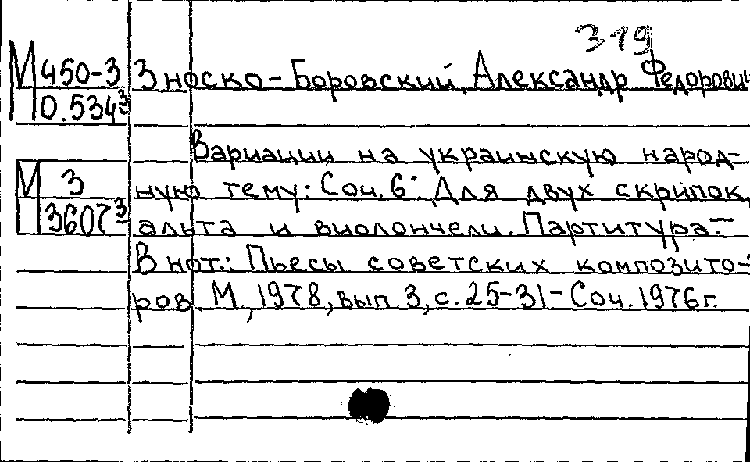 319
М 450-3 Зноско-Боровский, Александр Федорович
0.534³
Вариации на украинскую народ-
М 3 ную тему: Соч. 6. Для двух скрипок,
3607³ альта и виолончели. Партитура.-
В нот.: Пьесы советских композито-
ров. М., 1978, вып 3, с. 25-31 - Соч. 1976г.